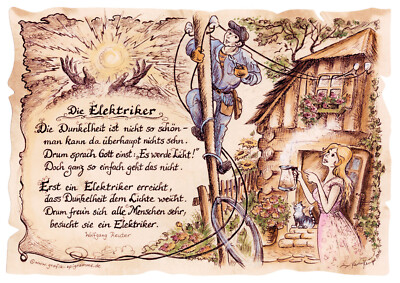 Die Elektriker
Die Dunkelheit ist nicht so schön –
man kann da überhaupt nichts sehn.
Drum sprach Gott einst: „Es werde Licht!"
Doch ganz so einfach geht das nicht.
Erst ein Elektriker erreicht,
dass Dunkelheit dem Lichte weicht.
Drum freun sich alle Menschen sehr,
besucht sie ein Elektriker.
Wolfgang Reuter